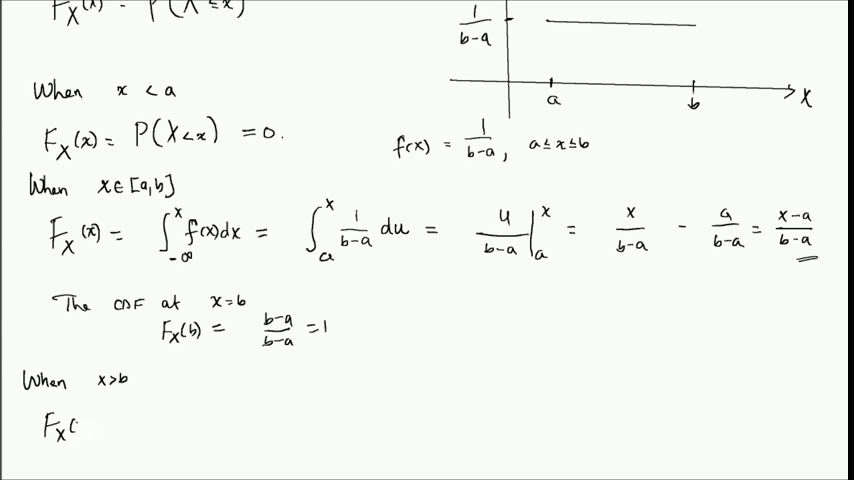 F_X(x) = P(X ≤ x)
1/(b-a)
a b X
When x < a
F_X(x) = P(X < x) = 0.
f(x) = 1/(b-a), a ≤ x ≤ b
When x ∈ [a,b]
F_X(x) = ∫_{-∞}^{x} f(x)dx = ∫_{a}^{x} 1/(b-a) du = u/(b-a) |_{a}^{x} = x/(b-a) - a/(b-a) = (x-a)/(b-a)
The CDF at x=b
F_X(b) = (b-a)/(b-a) = 1
When x>b
F_X(